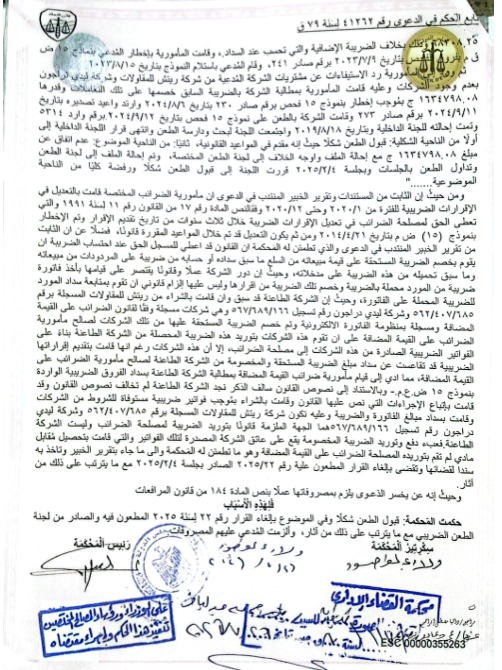 تابع الحكم في الدعوى رقم ٤١٢٦٢ لسنة ٧٩ ق
٦٨٣٠٨.٢٥ وذلك بخلاف الضريبة الإضافية والتي تحسب عند السداد، وقامت المأمورية بإخطار المدعي بنماذج ١٥ ض
ق م بتاريخ ٢٠٢٣/٧/٩ برقم صادر ٢٤١، وقام المدعي باستلام النموذج بتاريخ ٢٠٢٣/٨/١٥
المأمورية رد الاستيفاءات عن مشتريات الشركة المدعية من شركة ريتش للمقاولات وشركة ليدي دراجون
بعدم وجود الشركات وعليه قامت المأمورية بمطالبة الشركة بالضريبة السابق خصمها على تلك التعاملات وقدرها
١٦٣٤٧٩٨.٠٨ ج بموجب إخطار بنموذج ١٥ فحص برقم صادر ٢٣٠ بتاريخ ٢٠٢٤/٨/٦ وارتد واعيد تصديره بتاريخ
٢٠٢٤/٩/١١ برقم صادر ٢٧٣ وقامت الشركة بالطعن على نموذج ١٥ فحص بتاريخ ٢٠٢٤/٩/١٢ برقم وارد ٥٣١٤
وتمت إحالته للجنة الداخلية وبتاريخ ٢٠١٩/٨/١٨ واجتمعت اللجنة لبحث ودارسة الطعن وانتهى قرار اللجنة الداخلية إلى
أولا من الناحية الشكلية: قبول الطعن شكلًا حيث إنه مقدم في المواعيد القانونية، ثانيًا: من الناحية الموضوع: عدم اتفاق عن
مبلغ ١٦٣٤٧٩٨.٠٨ ج مع إحالة الملف واوجه الخلاف إلى لجنة الطعن المختصة، وتم إحالة الملف إلى لجنة الطعن
وتداول الطعن بالجلسات وبجلسة ٢٠٢٥/٢/٤ قررت اللجنة إلى قبول الطعن شكلًا ورفضة كليًا من الناحية
الموضوعية
ومن حيث إن الثابت من المستندات وتقرير الخبير المنتدب في الدعوى أن مأمورية الضرائب المختصة قامت بالتعديل في
الإقرارات الضريبية للفترة من ٢٠٢٠/١ وحتى ٢٠٢٠/١٢ المادة رقم ١٧ من القانون رقم ١١ لسنة ١٩٩١ والتي
تعطى الحق لمصلحة الضرائب في تعديل الإقرارات الضريبية خلال ثلاث سنوات من تاريخ تقديم الإقرار وتم الإخطار
بنموذج (١٥) ض م بتاريخ ٢٠١٤/٤/٢١ ومن ثم يكون التعديل قد تم خلال المواعيد المقررة قانونًا، فضلًا عن ان الثابت
من تقرير الخبير المنتدب في الدعوى والذي تطمئن له المحكمة ان القانون قد اعطي للمسجل الحق عند احتساب الضريبة ان
يقوم بخصم الضريبة المستحقة على قيمة مبيعاته من السلع ما سبق سداده أو حسابه من ضريبة على المردودات من مبيعاته
وما سبق تحميله من هذه الضريبة على مدخلاته، وحيث إن دور الشركة عملًا وقانونًا يقتصر على قيامها بأخذ فاتورة
ضريبية من المورد محملة بالضريبة وخصم تلك الضريبة من إقرارها وليس عليها إلزام قانوني ان تقوم بمتابعة سداد المورد
للضريبة المحملة على الفاتورة، وحيث إن الشركة الطاعنة قد سبق وان قامت بالشراء من ريتش للمقاولات المسجلة برقم
٥٦٢/٤٠٧/٦٨٥ وشركة ليدي دراجون رقم تسجيل ٥٦٧/٦٨٩/١٦٦ وهي شركات مسجلة وفقا لقانون الضرائب على القيمة
المضافة ومسجلة بمنظومة الفاتورة الالكترونية وتم خصم الضريبة المستحقة عليها من تلك الشركات لصالح مأمورية
الضرائب على القيمة المضافة على ان تقوم هذه الشركات بتوريد هذه الضريبة المحصلة من الشركة الطاعنة بناء على
الفواتير الضريبية الصادرة من هذه الشركات إلى مصلحة الضرائب، إلا أن هذه الشركات رغم انها قامت بتقديم إقراراتها
الضريبية قد تقاعست عن سداد مبلغ الضريبة المستحقة والمخصومة من الشركة الطاعنة لصالح مأمورية الضرائب على
القيمة المضافة، مما ادي إلى قيام مأمورية ضرائب القيمة المضافة بمطالبة الشركة الطاعنة بسداد الفروق الضريبية الواردة
بنموذج ١٥ ض.ع.م، وبالاستناد إلى نصوص القانون سالف الذكر نجد الشركة الطاعنة لم تخالف نصوص القانون وقد
قامت بإتباع الإجراءات التي نص عليها القانون وقامت بالشراء بموجب فواتير ضريبية مستوفاة للشروط من الشركات
وقامت بسداد مبالغ الفاتورة والضريبة وعليه تكون شركة ريتش للمقاولات المسجلة برقم ٥٦٢/٤٠٧/٦٨٥ وشركة ليدي
دراجون رقم تسجيل ٥٦٧/٦٨٩/١٦٦هما الجهة الملزمة قانونًا بتوريد الضريبة لمصلحة الضرائب وليست الشركة
الطاعنة.فعبء دفع وتوريد الضريبة المخصومة يقع على عاتق الشركة المصدرة لتلك الفواتير والتي قامت بتحصيل مقابل
مادي لم تقم بتوريده لمصلحة الضرائب على القيمة المضافة وهو ما تطمئن له المحكمة والى ما جاء بتقرير الخبير وتاخذ به
سندا لقضائها وتقضي بإلغاء القرار المطعون علية رقم ٢٠٢٥/٢٢ الصادر بجلسة ٢٠٢٥/٢/٤ مع ما يترتب على ذلك من
آثار.
وحيث إنه عن يخسر الدعوى يلزم بمصروفاتها عملًا بنص المادة ١٨٤ من قانون المرافعات
فلهذه الأسباب
حكمت المحكمة: قبول الطعن شكلًا وفي الموضوع بإلغاء القرار رقم ٢٢ لسنة ٢٠٢٥ المطعون فيه والصادر من لجنة
الطعن الضريبي مع ما يترتب على ذلك من آثار، وألزمت المدعي عليهم المصروفات
سكرتير المحكمة
رئيس المحكمة
محكمة القضاء الإداري
ESC 00000355263